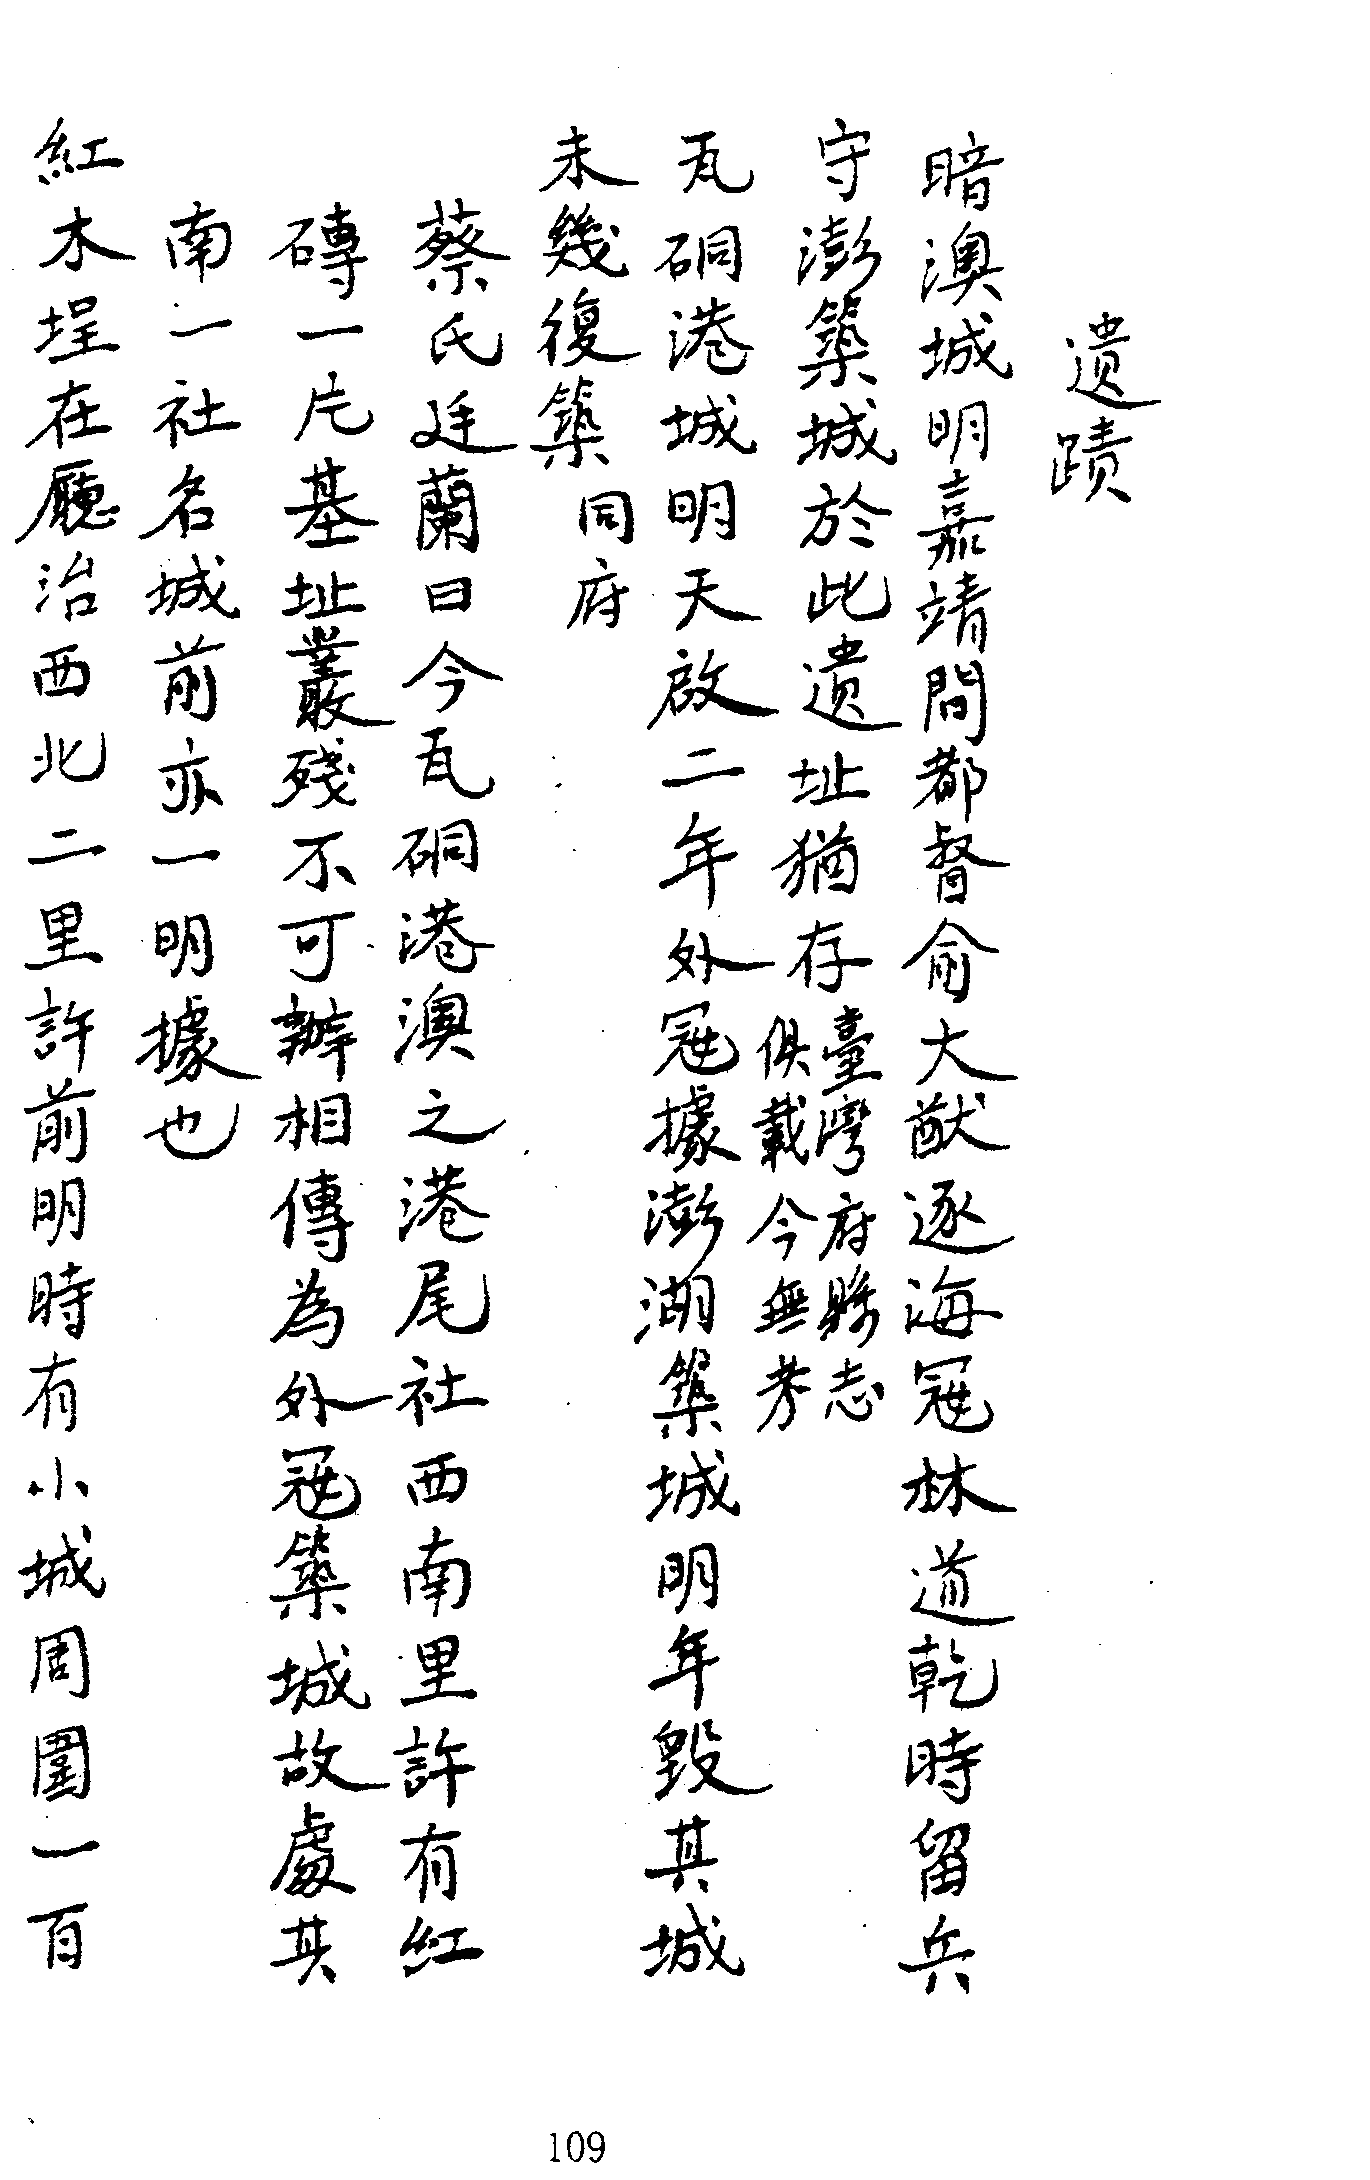 遺蹟
暗澳城明嘉靖間都督俞大猷逐海冦林道乾時留兵
守澎築城於此遺址猶存臺灣府縣志
俱載今無考
瓦硐港城明天啟二年外冦據澎湖築城明年毀其城
未幾復築同府
蔡氏廷蘭曰今瓦硐港澳之港尾社西南里許有紅
磚一片基址叢殘不可辦相傳為外冦築城故處其
南一社名城前亦一明據也
紅木埕在廳治西北二里許前明時有小城周圍一百
109